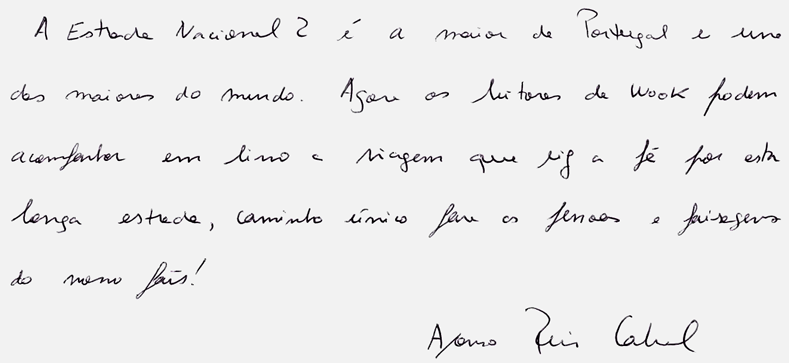 A Estrada Nacional 2 é a maior de Portugal e uma
das maiores do mundo. Agora os leitores da Wook podem
acompanhar em livro a viagem que fiz a pé por esta
longa estrada, caminho único para as pessoas e paisagens
do nosso país!
Afonso Reis Cabral